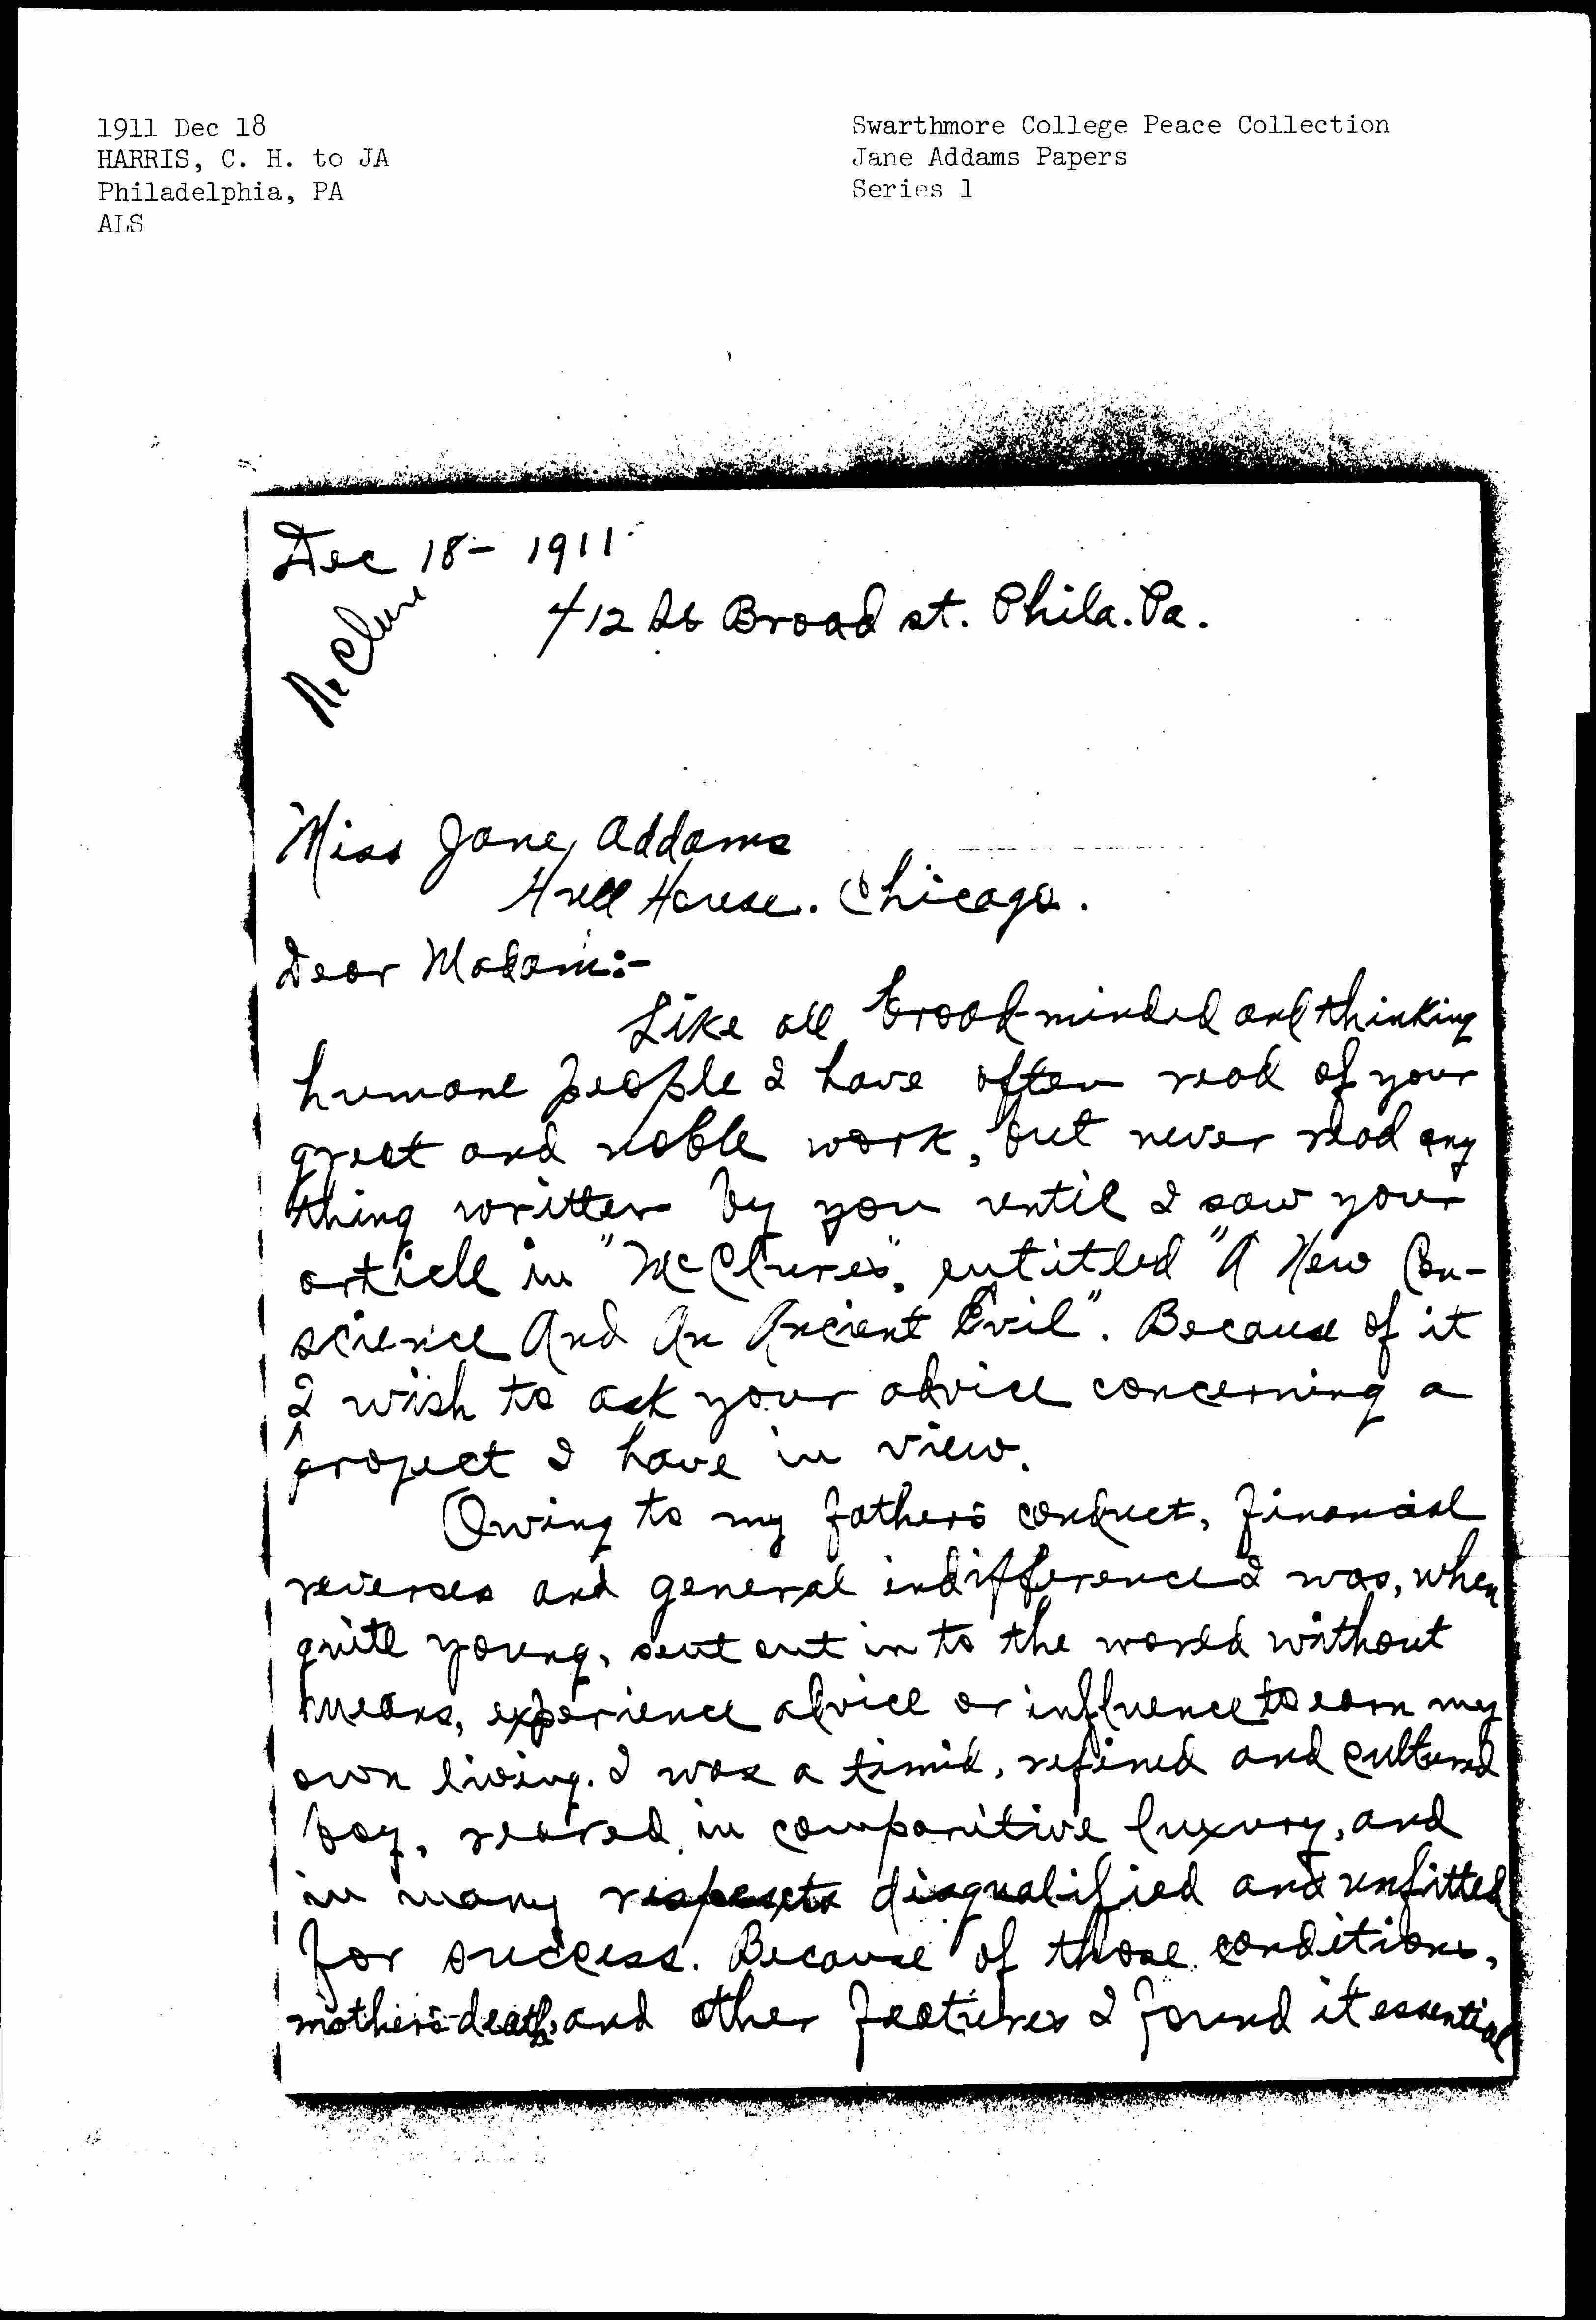 1911 Dec 18
HARRIS, C. H. to JA
Philadelphia, PA
ALS
Swarthmore College Peace Collection
Jane Addams Papers
Series 1
Dec 18 - 1911
McClure
412 Broad st. Phila. Pa.
Miss Jane Addams
Hull House. Chicago.
Dear Madam:-
Like all broad-minded and thinking
humane people I have often read of your
great and noble work, but never read any
thing written by you until I saw your
article in "McClures", entitled "A New Con-
science And An Ancient Evil". Because of it
I wish to ask your advice concerning a
project I have in view.
Owing to my father's conduct, financial
reverses and general indifference I was, when
quite young, sent out in to the world without
means, experience advice or influence to earn my
own living. I was a timid, refined and cultured
boy, reared in comparitive luxury, and
in many respects disqualified and unfitted
for success. Because of those conditions,
mother's death, and other features I found it essential